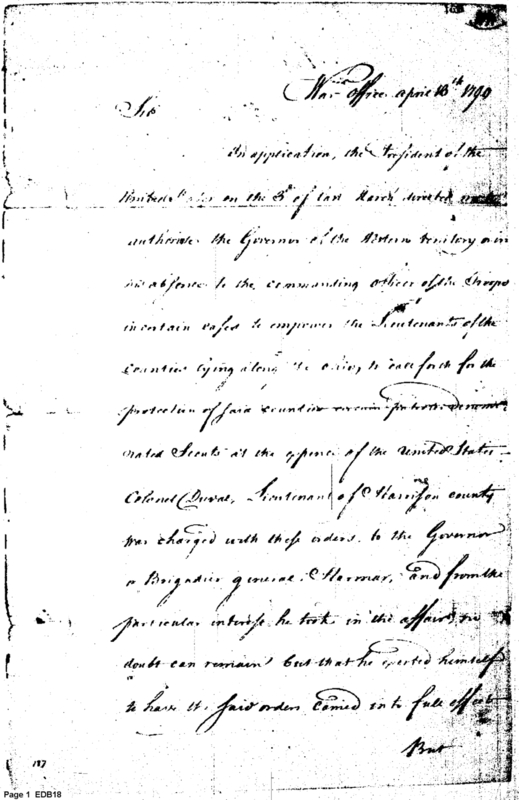 168
War office April 13th 1790
Sir
On application, the President of the
United States on the 3d of last March directed
authorise the Governor of the Western territory or in
his absence to the commanding officer of the Troops
in certain cases to empower the Lieutenants of the
counties lying along the Ohio, to call forth for the
protection of said counties certain patrols denomi-
nated Scouts at the expence of the United States
Colonel Duval, Lieutenant of Harrison county
was charged with these orders to the Governor
or Brigadier general Harmar, and from the
particular interest he took in the affair no
doubt can remain but that he exerted himself
to have the said orders carried into full effect
But
187
Page 1 EDB18